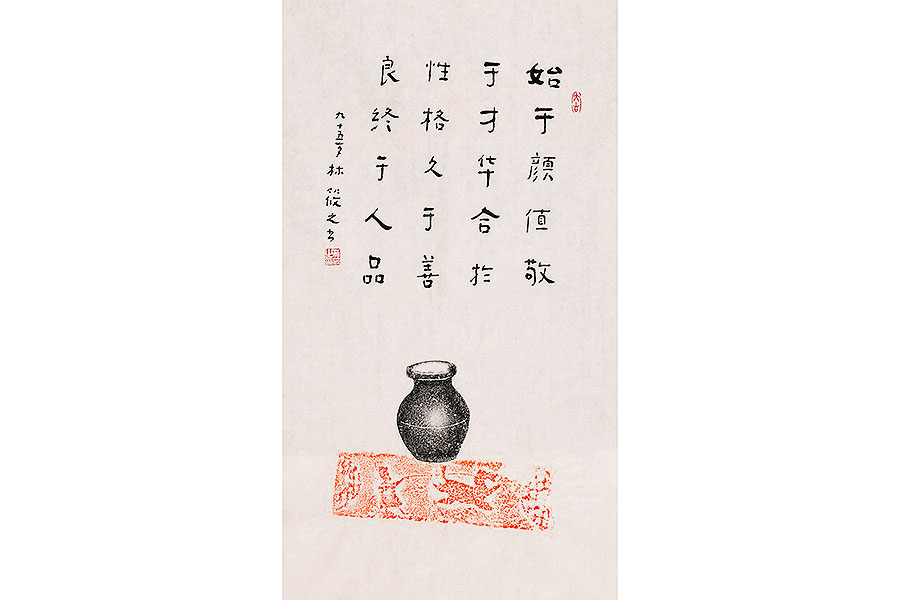 始于颜值敬
于才华合於
性格久于善
良终于人品
九十五岁林筱之书